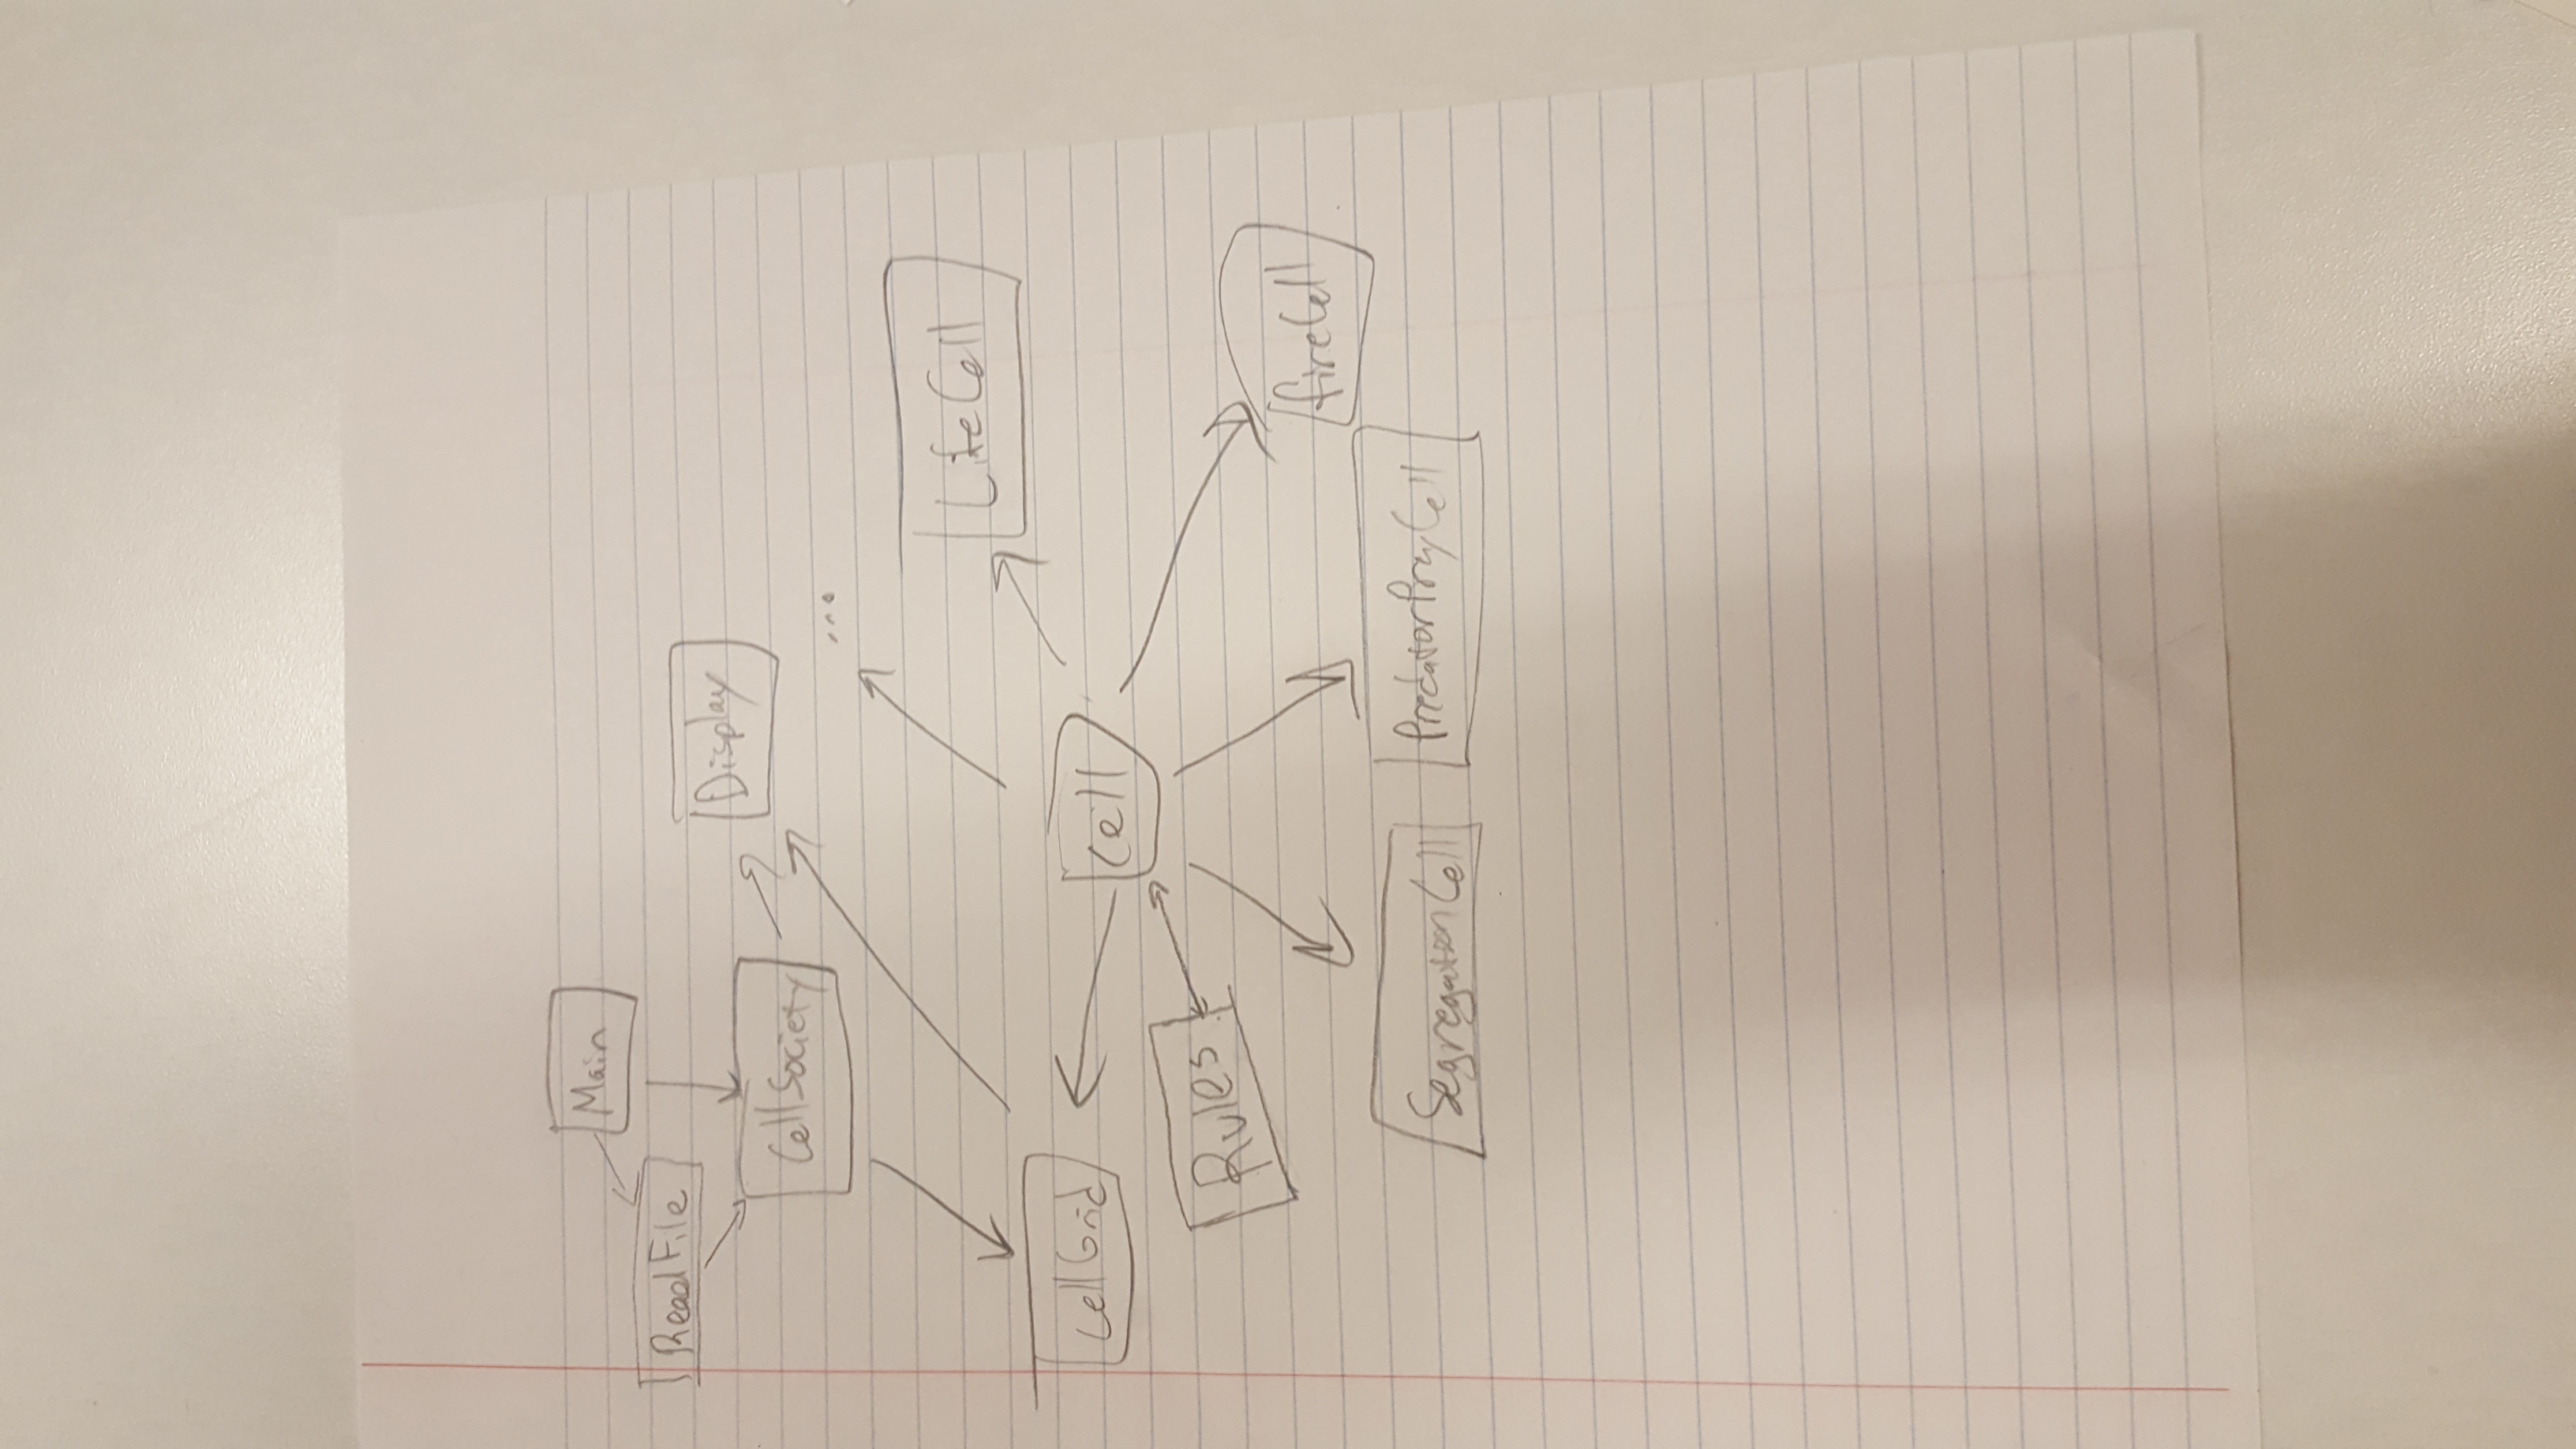 Main
ReadFile
Display
CellSociety
...
LifeCell
CellGrid
Cell
Rules
fireCell
SegregationCell
PredatorPreyCell